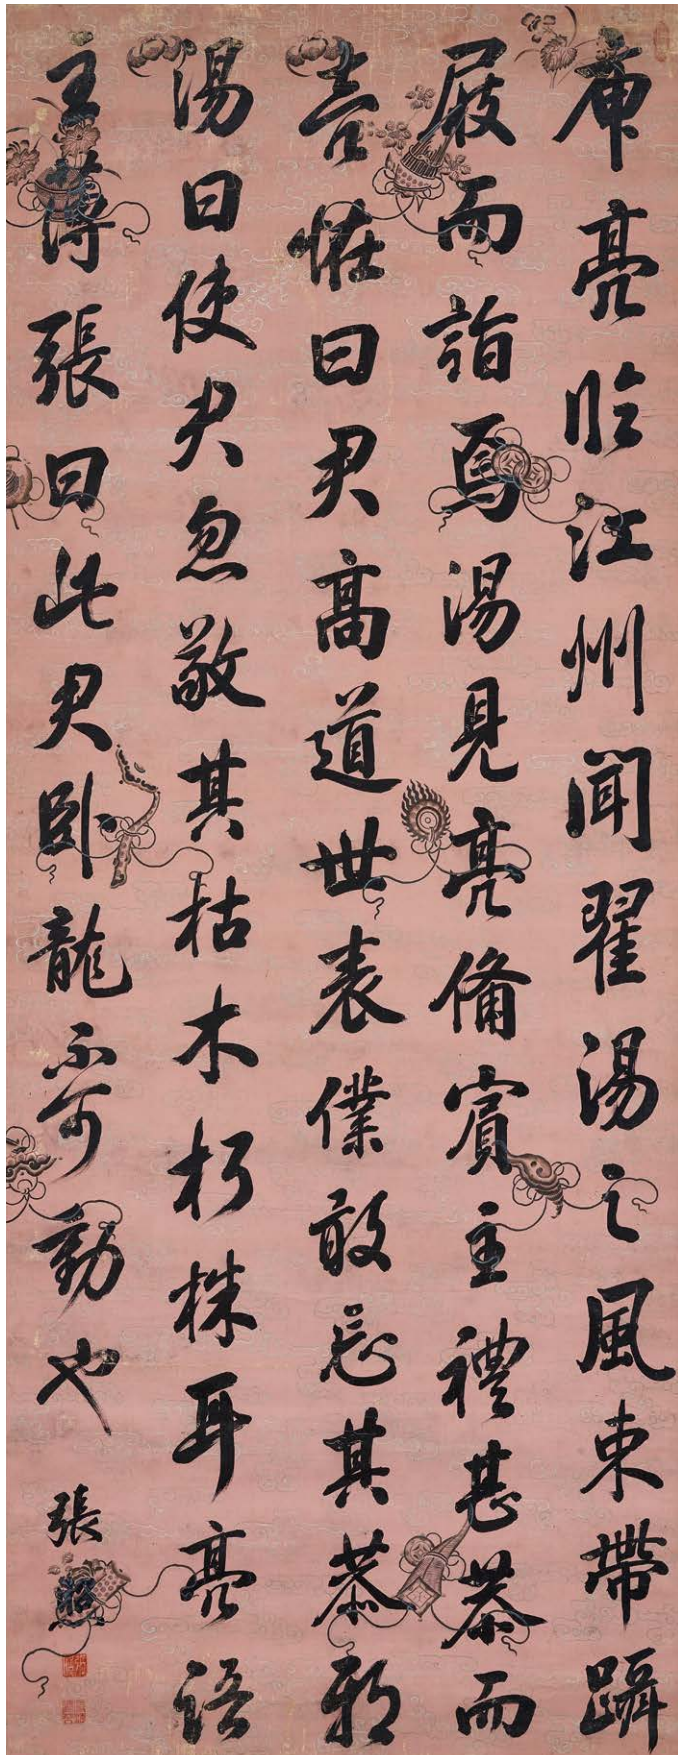 庾亮臨江州聞翟湯之風束帶躡
屐而詣焉湯見亮備賓主禮甚恭而
怪曰君高道世表僕敢忘其恭邪
湯曰使君忽敬其枯木朽株耳亮語
主簿張曰此君臥龍不可動也
張照